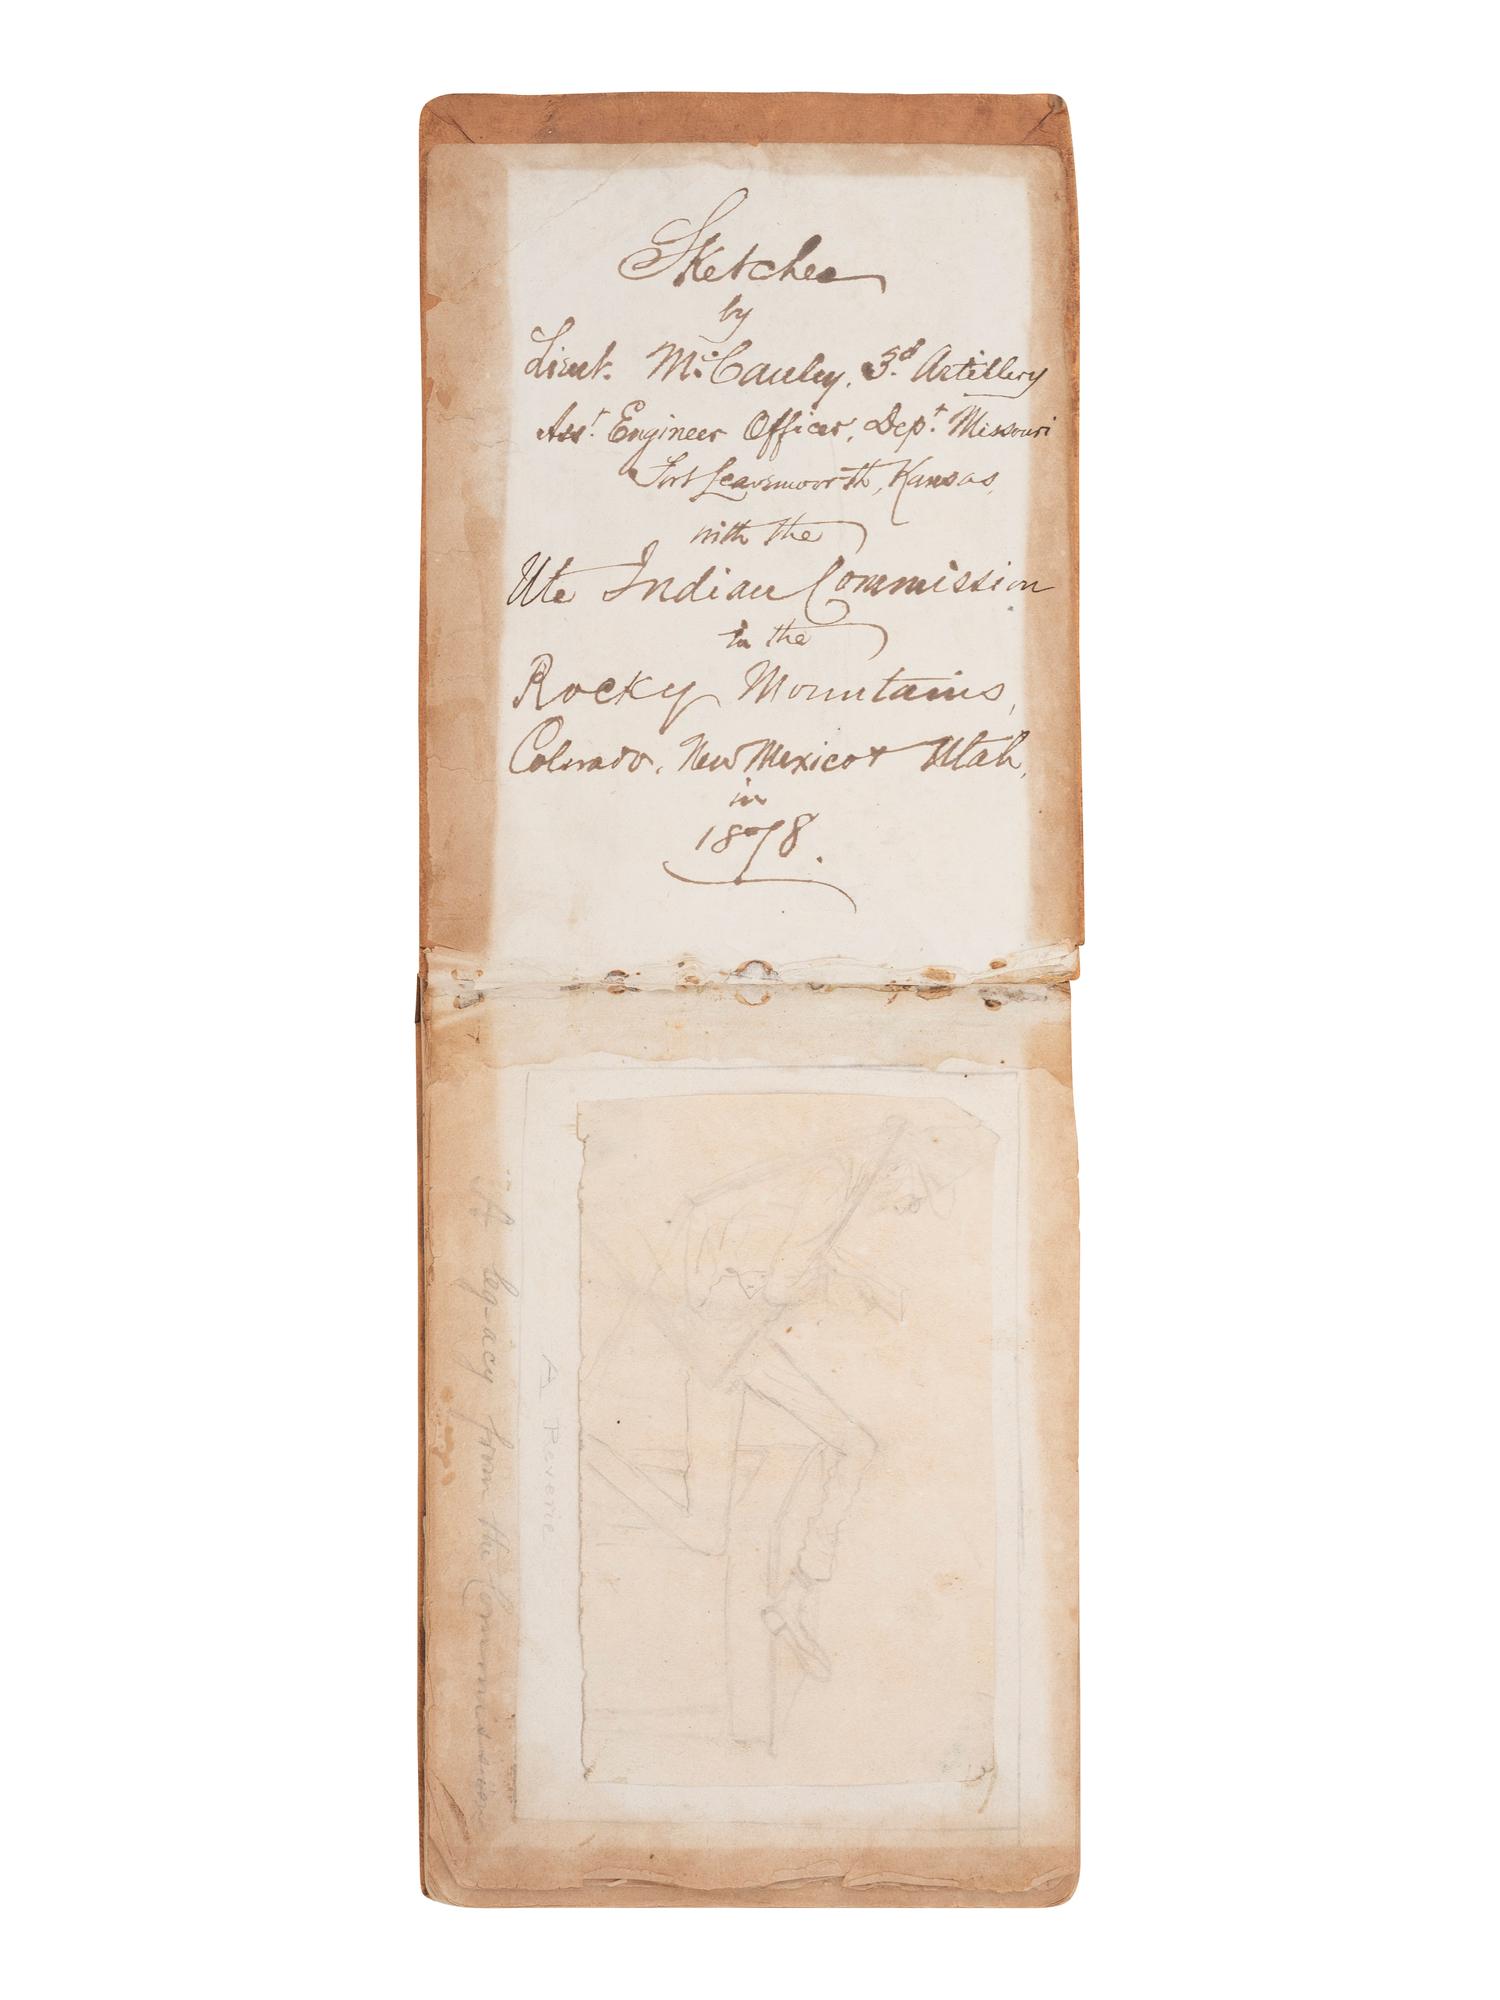 Sketches
by
Lieut. McCauley, 3d Artillery
Asst. Engineer Officer, Dept. Missouri
Fort Leavenworth, Kansas,
with the
Ute Indian Commission
to the
Rocky Mountains,
Colorado, New Mexico & Utah,
in
1878.
A Reverie
A leg-acy from the Commission